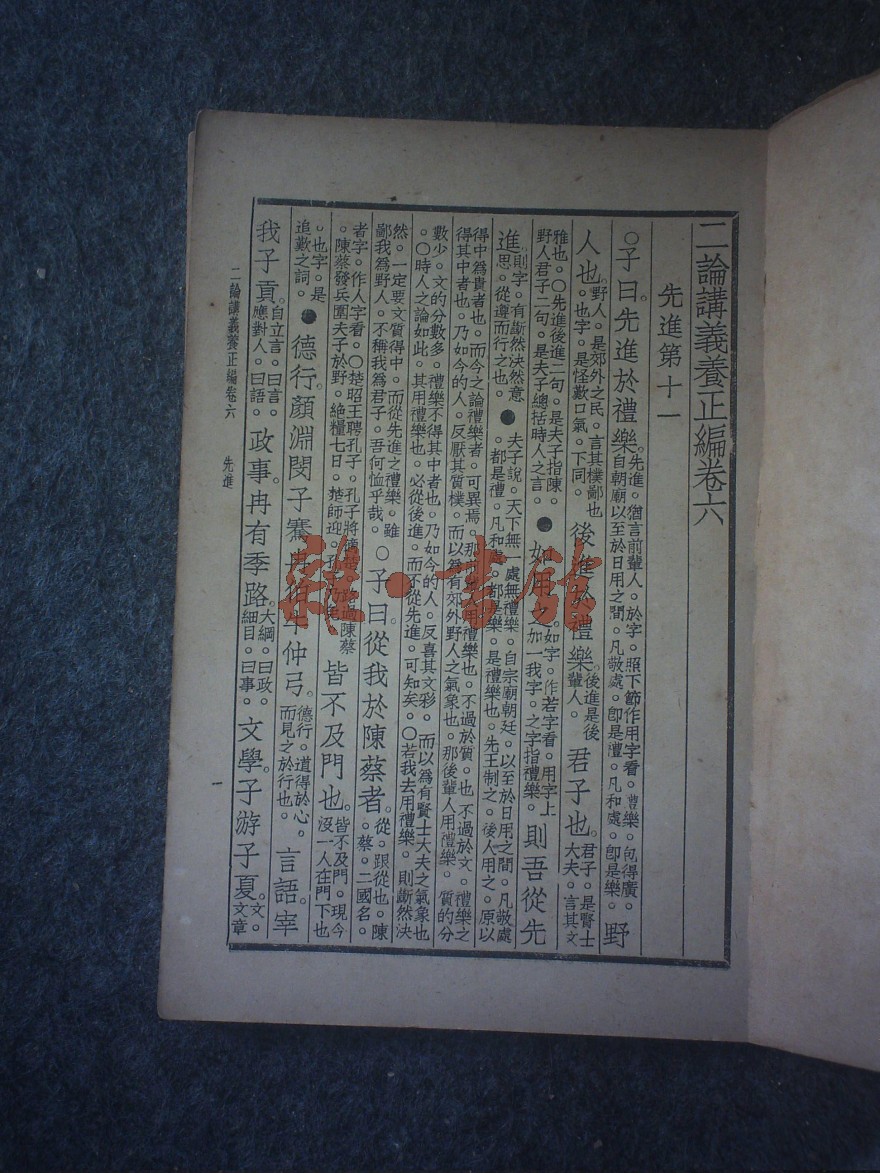 二論講義養正編卷六
先進第十一
○子曰先進於禮樂。先進。猶言前輩人。於字。照下節作用字看。豊樂。包得廣。自朝廟以至於日用之間。凡敬處。卽是禮。凡和處。卽是樂。野
人也。野人。是郊外之民。言其樸鄙也。也字。是怪歎口氣。下同。後進於禮樂。後進是後輩人。君子也。君子。是賢士大夫。言其文
雅也。○先進後進二句。是夫子指陳。野人君子二句。是夫子總括時人之言。●如用之。如字。作若字看。用字上加一我字。之字指禮樂。則吾從先
進。則字。有斷然決然意思。從。遵而行之也。●夫子說。天下無一處無禮樂。自宗廟朝廷。以至於日用之間。凡敬處。都是禮。凡和處。都是樂。是禮樂也。先王制之。後人用之。原以
得中爲貴者也。而今之論禮樂者。可異焉。那用禮樂也。不過於質。也不過於文。禮樂之得其中者也。乃如今的人。反厭其質樸。而以爲有郊外野人之氣象也。那後輩人用禮樂。質的分
數少。文的分數多。禮樂不得其中者也。乃如今的人。反喜其文彩。而以爲有賢士大夫之氣象也。○時人之論如此。其用禮樂也。必從後進。而不從先進。可知矣。○若我去用禮樂。則斷然決
然。一定要文質得中。而從先進之禮樂。雖鄙我爲野人。不稱我爲君子。吾何恤乎哉。○子曰從我於陳蔡者。從。跟從也。陳蔡。二國名。
者字。作人字看。○楚昭王聘孔子。孔子將陳蔡。陳蔡發兵圍夫子於野。絶糧七日。楚師迎。皆不及門也。皆不及門。現今沒一人在門下也
。也字。是追歎之詞。●德行。顏淵閔子騫冉伯牛仲弓。德行。道得於心。而見之於行也。言語。宰
我子貢。自立言。曰言。應對人。曰語。政事。冉有季路。大綱。曰政。細目。曰事。文學。子游子夏。文。文章
二論講義養正編卷六　先進
雜·書館